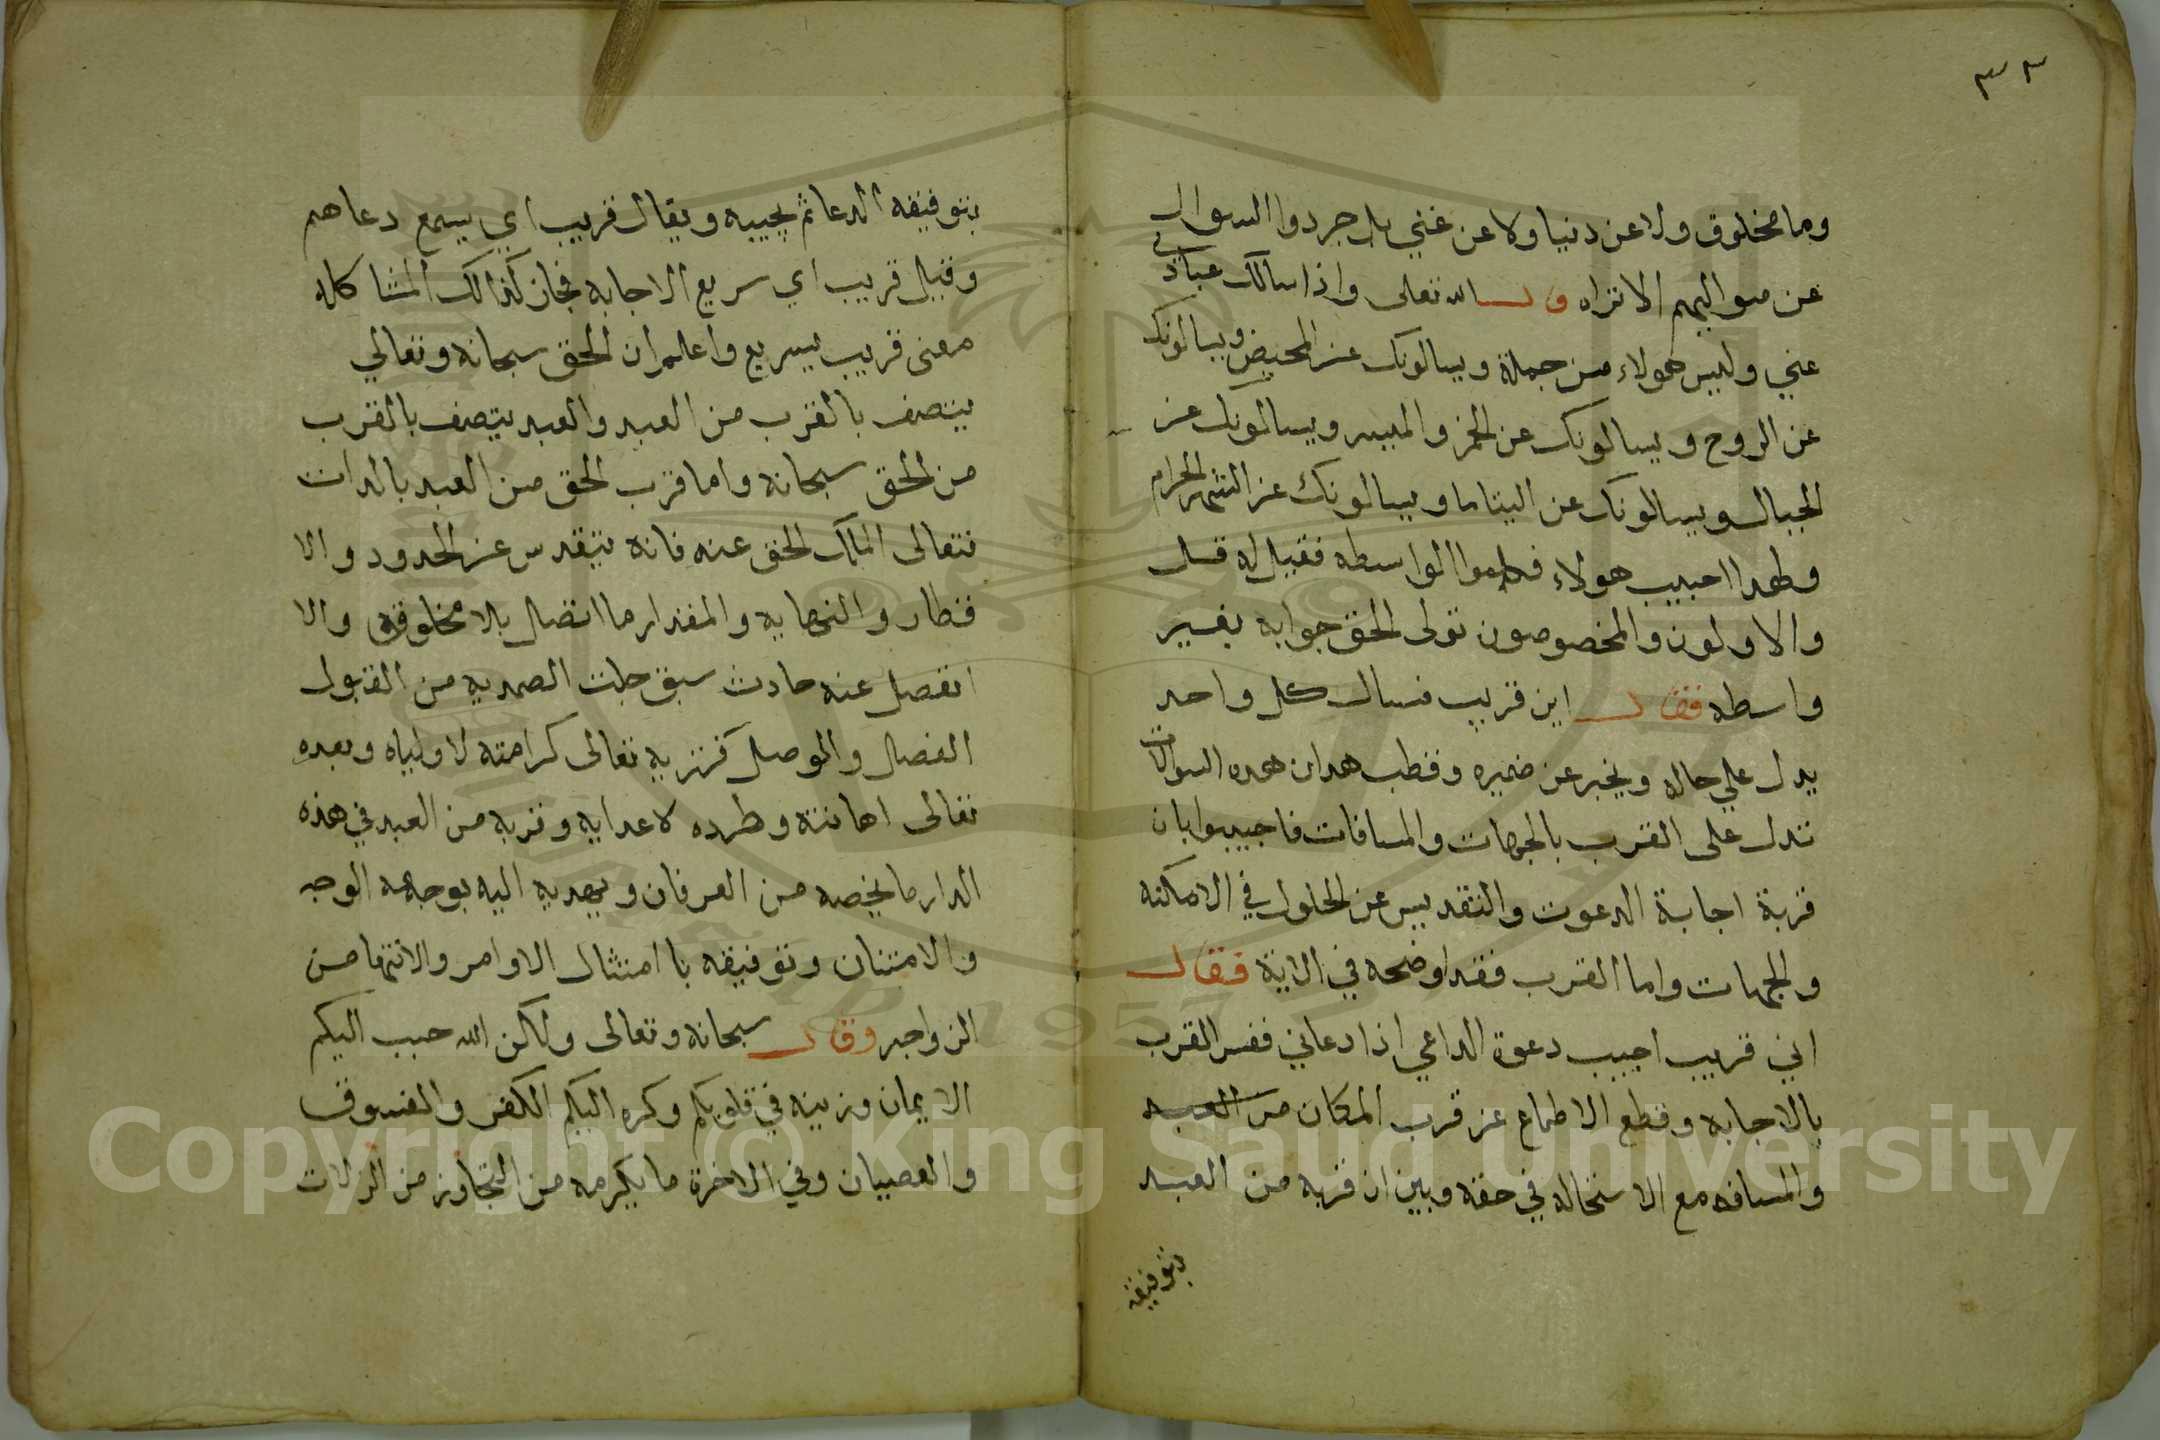 ٣٢
وما مخلوق ولا عن دنيا ولا عن غني بل جردوا السوال
عن مواليهم الا تراه قال الله تعالى واذا سالك عبادي
عني وليس هولاء من جملة ويسالونك عن المحيض ويسالونك
عن الروح ويسالونك عن الخمر والميسر ويسالونك عن
الجبال ويسالونك عن اليتاما ويسالونك عن الشهر الحرام
ولهذا احبيب هولاء الواسطه فقيل له قل
والاولون والمخصوصون تولى الحق جوابه بغير
واسطه فقال اين قريب فسال كل واحد
يدل علي حاله ويخبر عن ضميره وقطب هدان هده السوالات
تدل على القرب بالجهات والمسافات فاجيبوا بان
قربة اجابة الدعوت والتقديس عن الحلول في الامكنه
والجهات واما القرب فقد اوضحه في الاية فقال
اني قريب اجيب دعوة الداعي اذا دعاني ففسر القرب
بالاجابه وقطع الاطماع عن قرب المكان من العبد
والمسافه مع الاستحاله في حقه وبين ان قربه من العبد
بتوفيقه
بتوفيقه الدعا ثم يجيبه ويقال قريب اي يسمع دعاهم
وقيل قريب اي سريع الاجابه فجاز كذالك المشاكله
معنى قريب بسريع واعلم ان الحق سبحانه وتعالي
يتصف بالقرب من العبد والعبد يتصف بالقرب
من الحق سبحانه واما قرب الحق من العبد بالدات
فتعالى الملك الحق عنه فانه يتقدس عن الحدود والا
قطار والنهايه والمقدار ما اتصال بلا مخلوق والا
انفصل عنه حادث سبق جلت الصمديه من القبول
الفصل والوصل فقربه تعالى كرامته لاولياه وبعده
تعالى اهانته وطرده لاعدايه وقربه من العبد في هذه
الدار ما يخصه من العرفان ويهديه اليه بوجهه الوجه
والامتنان وتوفيقه باامتثال الاوامر والانتها من
الزواجر وقال سبحانه وتعالى ولكن الله حبب اليكم
الايمان وزينه في قلوبكم وكره اليكم الكفر والفسوق
والعصيان وفي الاخرة ما يكرمه من التجاوز من الزلات
Copyright © King Saud University
1957